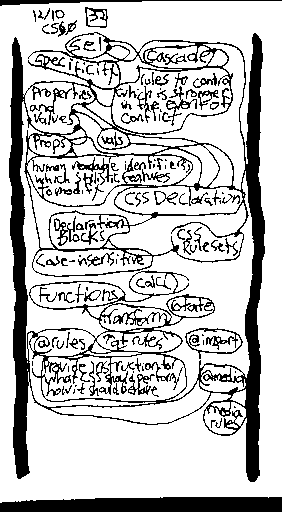 12/10 32
CSS
sel
Cascade
Specificity
rules to control
which is stronger
in the event of
conflict
Properties
and
values
Props
vals
human readable identifiers,
which stylistic features
to modify
CSS Declaration
Declaration
Blocks
CSS
Rulesets
Case-insensitive
calc()
Functions
rotate
transform
@rules
@import
Provide instruction for
what CSS should perform/
how it should behave
@media
media
rules